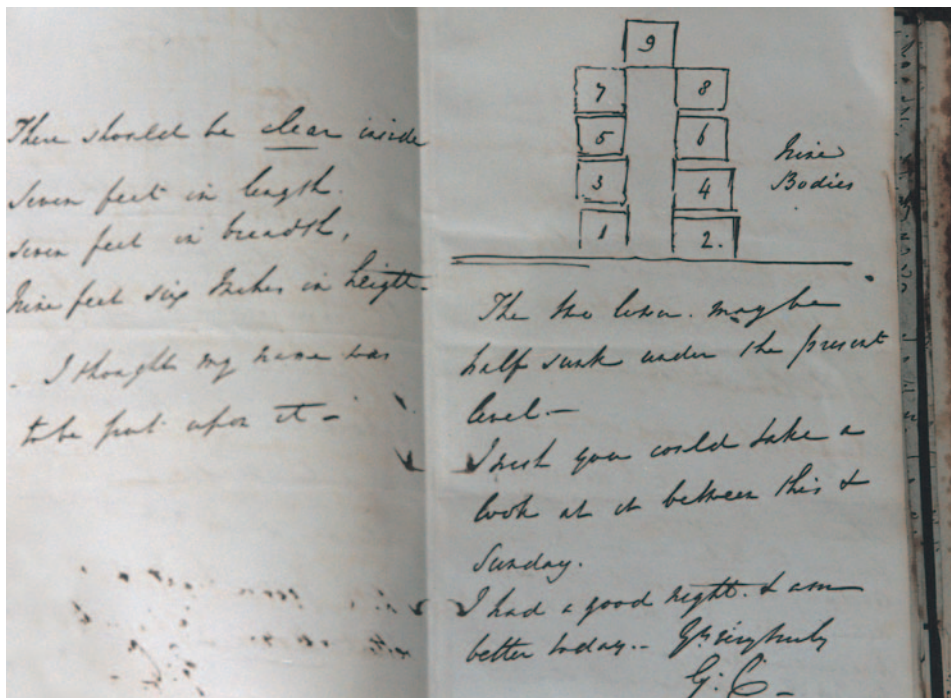 There should be clear inside
seven feet in length.
seven feet in breadth,
Nine feet six Inches in height-
- I thought my name was
to be put upon it -
9
7 8
5 6
3 4
1 2.
Nine
Bodies
The two lower. may be
half sunk under the present
level.-
I wish you could take a
look at it between this &
Sunday.
I had a good night. & am
better today.. Yrs very truly
G: C-